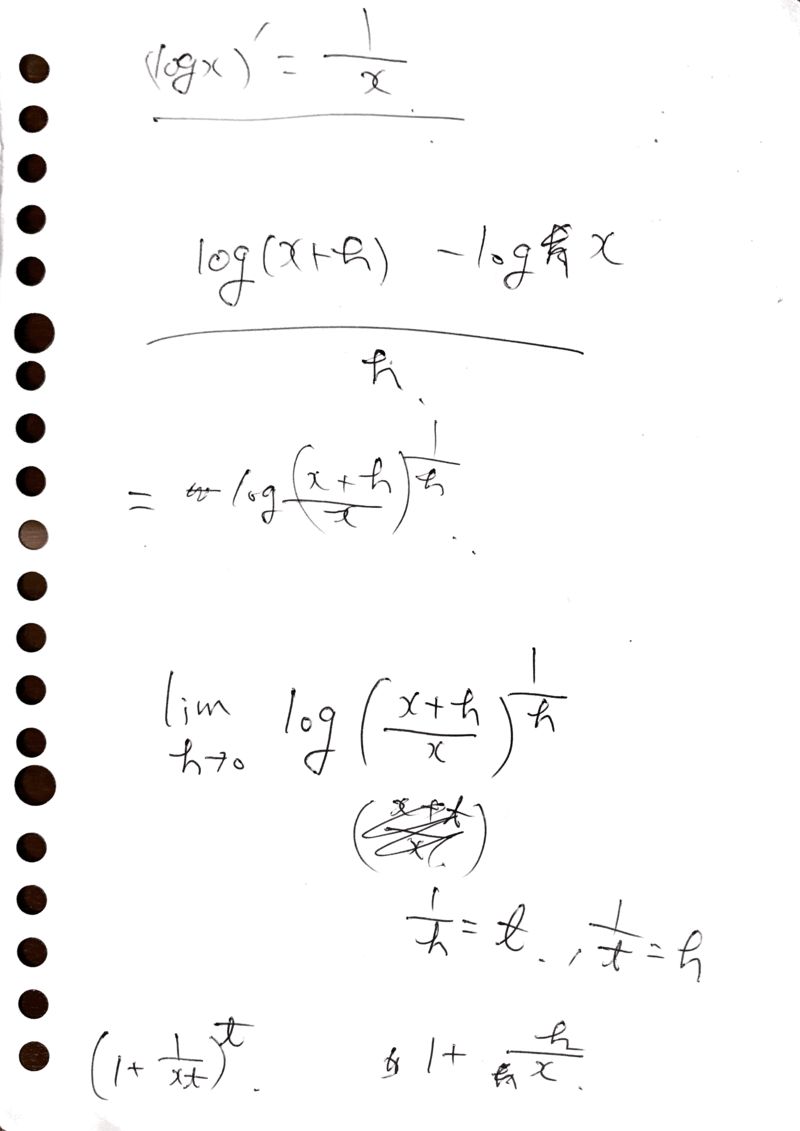 (log x)' = 1/x
log(x+h) - log x
h
= log((x+h)/x)^(1/h)
lim h→0 log((x+h)/x)^(1/h)
1/h = t . , 1/t = h
(1 + 1/(xt))^t . 1 + h/x .